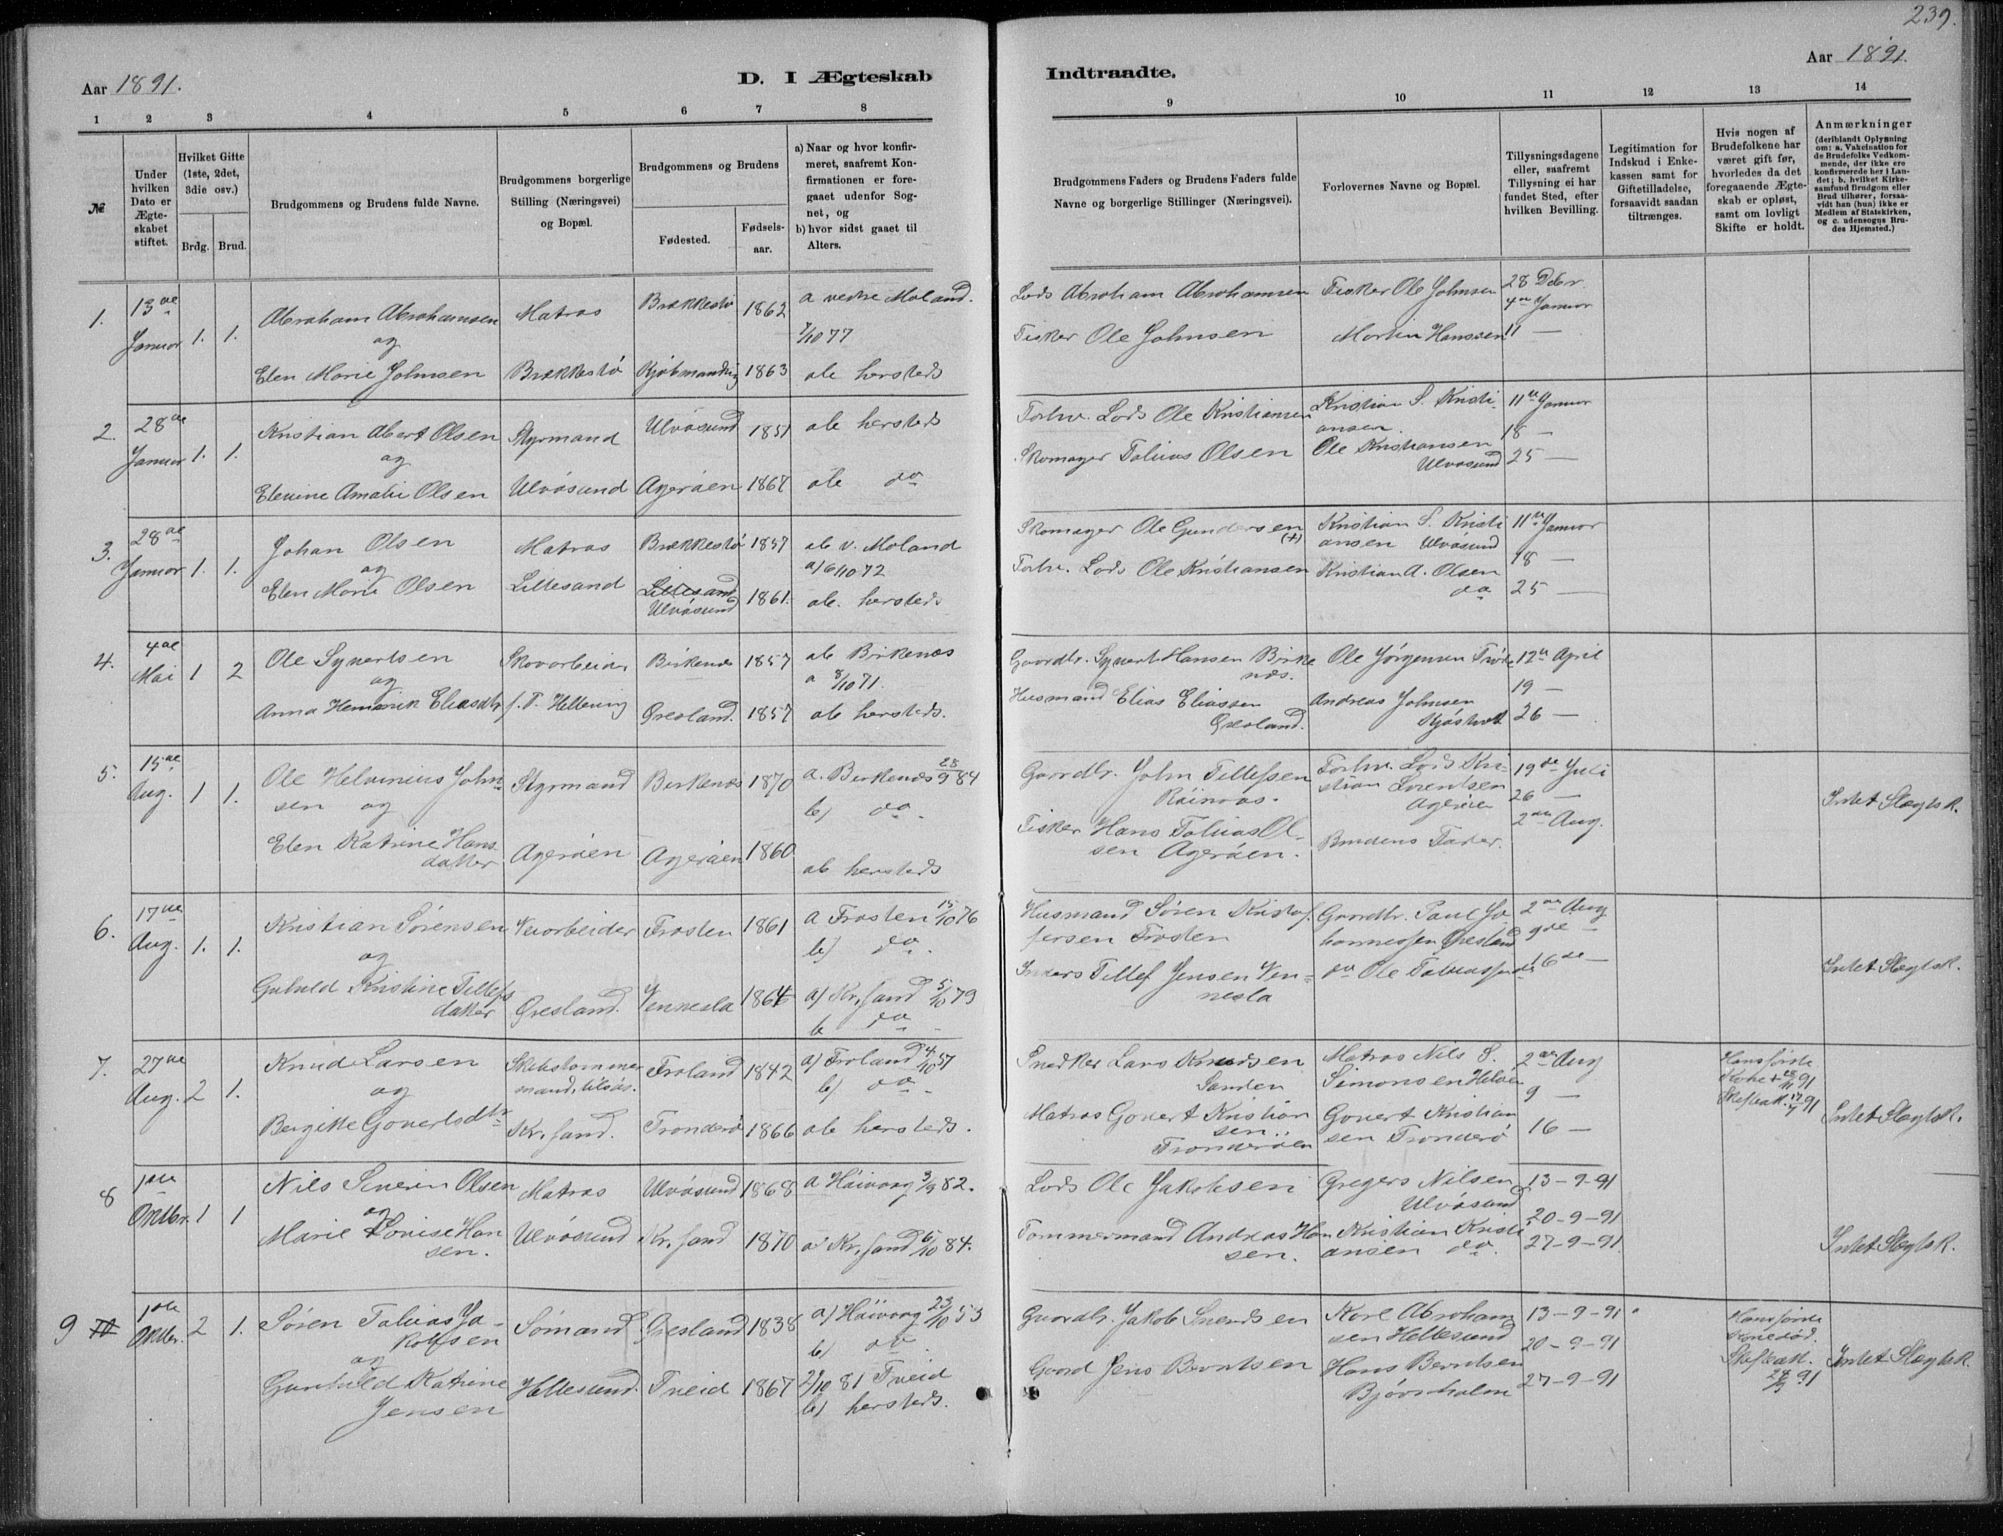 239.
Aar 1891.
D. I Ægteskab
Indtraadte.
Aar 1891.
1 2 3 4 5 6 7 8
9 10 11 12 13 14
№
Under hvilken Dato er Ægteskabet stiftet.
Hvilket Gifte (1ste, 2det, 3die osv.)
Brdg. Brud.
Brudgommens og Brudens fulde Navne.
Brudgommens borgerlige Stilling (Næringsvei) og Bopæl.
Brudgommens og Brudens
Fødested.
Fødselsaar.
a) Naar og hvor konfirmeret, saafremt Konfirmationen er foregaaet udenfor Sognet, og
b) hvor sidst gaaet til Alters.
Brudgommens Faders og Brudens Faders fulde Navne og borgerlige Stillinger (Næringsvei).
Forlovernes Navne og Bopæl.
Tillysningsdagene eller, saafremt Tillysning ei har fundet Sted, efter hvilken Bevilling.
Legitimation for Indskud i Enkekassen samt for Giftetilladelse, forsaavidt saadan tiltrænges.
Hvis nogen af Brudefolkene har været gift før, hvorledes da det foregaaende Ægteskab er opløst, samt om lovligt Skifte er holdt.
Anmærkninger
(deriblandt Oplysning om: a. Vakcination for de Brudefolks Vedkommende, der ikke ere konfirmerede her i Landet; b. hvilket Kirkesamfund Brudgom eller Brud tilhører, forsaavidt han (hun) ikke er Medlem af Statskirken, og c. udensogns Brudes Hjemsted.)
1. 13de Januar 1. 1. Abraham Abrahamsen Matros Brækkestø 1862 a vestre Moland. 7/10 77
og
Elen Marie Johnsen Brækkestø 1863 ab hersteds
Lods Abraham Abrahamsen Fisker Ole Johnsen 28 Debr.
4de Januar
Fisker Ole Johnsen Martin Hanssen 11 —
2. 28de Januar 1. 1. Kristian Abert Olsen Styrmand Ulvøsund 1851 ab hersteds
og
Elevine Amalie Olsen Ulvøsund Agerøen 1867 ab do
Forhv. Lods Ole Kristiansen Kristian S. Kristiansen. 11te Januar
18 —
Skomager Tobias Olsen Ole Kristiansen Ulvøsund 25 —
3. 28de Januar 1. 1. Johan Olsen Matros Brækkestø 1857 ab v. Moland
og a) 6/10 72
Elen Marie Olsen Lillesand Lillesand Ulvøsund 1861. ab. hersteds
Skomager Ole Gundersen (+) Kristian S. Kristiansen Ulvøsund 11te Januar
18 —
Forhv. Lods Ole Kristiansen Kristian A. Olsen do 25 —
4. 4de Mai 1 2 Ole Syvertsen Skovarbeider Birkenæs 1857 ab Birkenæs
og a 8/10 71.
Anna Henrik Eliasdtr f. T. Øresland. 1857 ab hersteds.
Gaardbr. Syvert Hansen Birkenæs. Ole Jørgensen 12te April
19 —
Husmand Elias Eliassen Øresland. Andreas Johnsen 26 —
5. 15de Aug. 1 1. Ole Helvinius Johnsen og Styrmand Birkenæs 1870 a. Birkenæs 28/9 84
b) do.
Elen Katrine Hansdatter Agerøen Agerøen 1860 ab hersteds
Gaardbr. John Tellefsen Forhv. Lods Kristian Lorentsen Agerøen 19de Juli
26 —
2den Aug.
Fisker Hans Tobias Olsen Agerøen. Brudens Fader.
Intet Slægtsk.
6. 17de Aug. 1. 1. Kristian Sørensen Veiarbeider Frosten 1861 a Frosten 15/10 76
og b) do.
Guhild Kristine Tellefsdatter Øresland. Vennesla 1864 a) Kr.sand 5/10 79
b do
Husmand Søren Kristoffersen Frosten Gaardbr. Paul Johannessen Øresland 2den Aug
9de —
Inders Tellef Jensen Vennesla do Ole Tobiassen do 16de —
Intet Slægtsk.
7. 27de Aug. 2 1. Knud Larsen Skibstømmermand, tilsøs. Froland 1842 a) Froland 4/10 57
og b) do.
Bergitte Govertsdtr Kr.sand. Tronderø 1866 ab hersteds.
Snedker Lars Knudsen Sanden Matros Nils S. Simonsen 2den Aug
9 —
Matros Govert Kristiansen Tronderøen Govert Kristiansen Tronderø 16 —
Hans første Kone +
Skifteatt. 17/7 91
Intet Slægtsk.
8 1ste Oktbr. 1 1 Nils Severin Olsen Matros Ulvøsund 1868 a Høivaag 3/9 82.
og
Marie Lovise Hansen. Ulvøsund Kr.sand 1870 a) Kr.sand 5/10 84.
Lods Ole Jakobsen Gregers Nilsen Ulvøsund 13-9-91
20-9-91
Tømmermand Andreas Hansen. Kristian Kristiansen do. 27-9-91
Intet Slægtsk.
9 10 1ste Oktbr. 2 1. Søren Tobias Jakobsen Sømand Øresland 1838 a) Høivaag 23/10 53
og b) do
Gunhild Katrine Jensen Hellesund. Tveid 1867 2/10 81 Tveid
b) hersteds.
Gaardbr. Jakob Svendsen Kare Abrahamsen Hellesund 13-9-91
20-9-91
Gaard Jens Berntsen Hans Berntsen Bjørnholm 27-9-91
Hans første Kone død.
Skifteatt. 28/9 91
Intet Slægtsk.